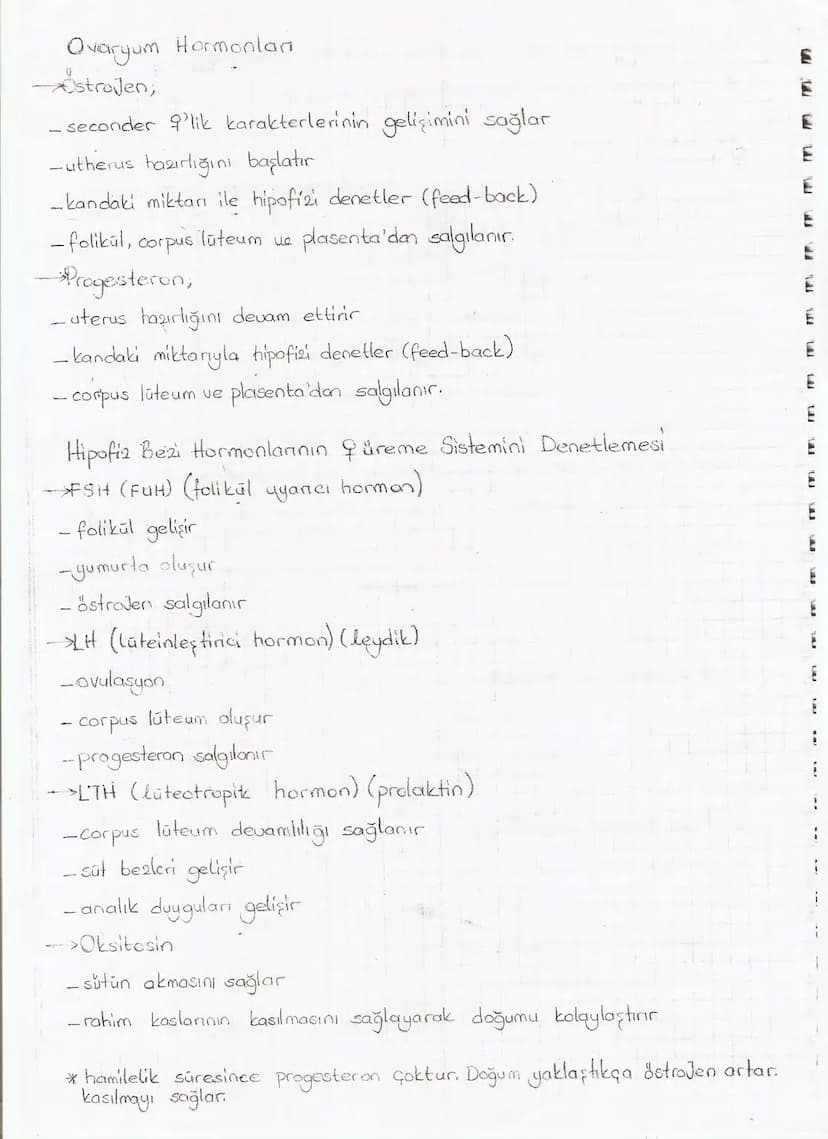 Ovaryum Hormonları
→Östrojen;
- seconder ♀'lik karakterlerinin gelişimini sağlar
- utherus hazırlığını başlatır
- kandaki miktarı ile hipofizi denetler (feed-back)
- folikül, corpus lüteum ve plasenta'dan salgılanır.
→Progesteron;
- uterus hazırlığını devam ettirir
- kandaki miktarıyla hipofizi denetler (feed-back)
- corpus lüteum ve plasenta'dan salgılanır.
Hipofiz Bezi Hormonlarının ♀ üreme Sistemini Denetlemesi
→FSH (FUH) (folikül uyarıcı hormon)
- folikül gelişir
- yumurta oluşur
- östrojen salgılanır
→LH (lüteinleştirici hormon) (leydik)
- ovulasyon
- corpus lüteum oluşur
- progesteron salgılanır
→LTH (lüteotropik hormon) (prolaktin)
- corpus lüteum devamlılığı sağlanır
- süt bezleri gelişir
- analık duyguları gelişir
→Oksitosin
- sütün akmasını sağlar
- rahim kaslarının kasılmasını sağlayarak doğumu kolaylaştırır
* hamilelik süresince progesteron çoktur. Doğum yaklaştıkça östrojen artar.
kasılmayı sağlar.